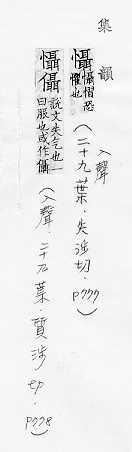 集韻
入聲
懾 懾慴恐
懼也
（二十九葉．失涉切．p777）
懾㒤 說文失气也一
曰服也或作㒤
（入聲．二十九葉．質涉切．p778）